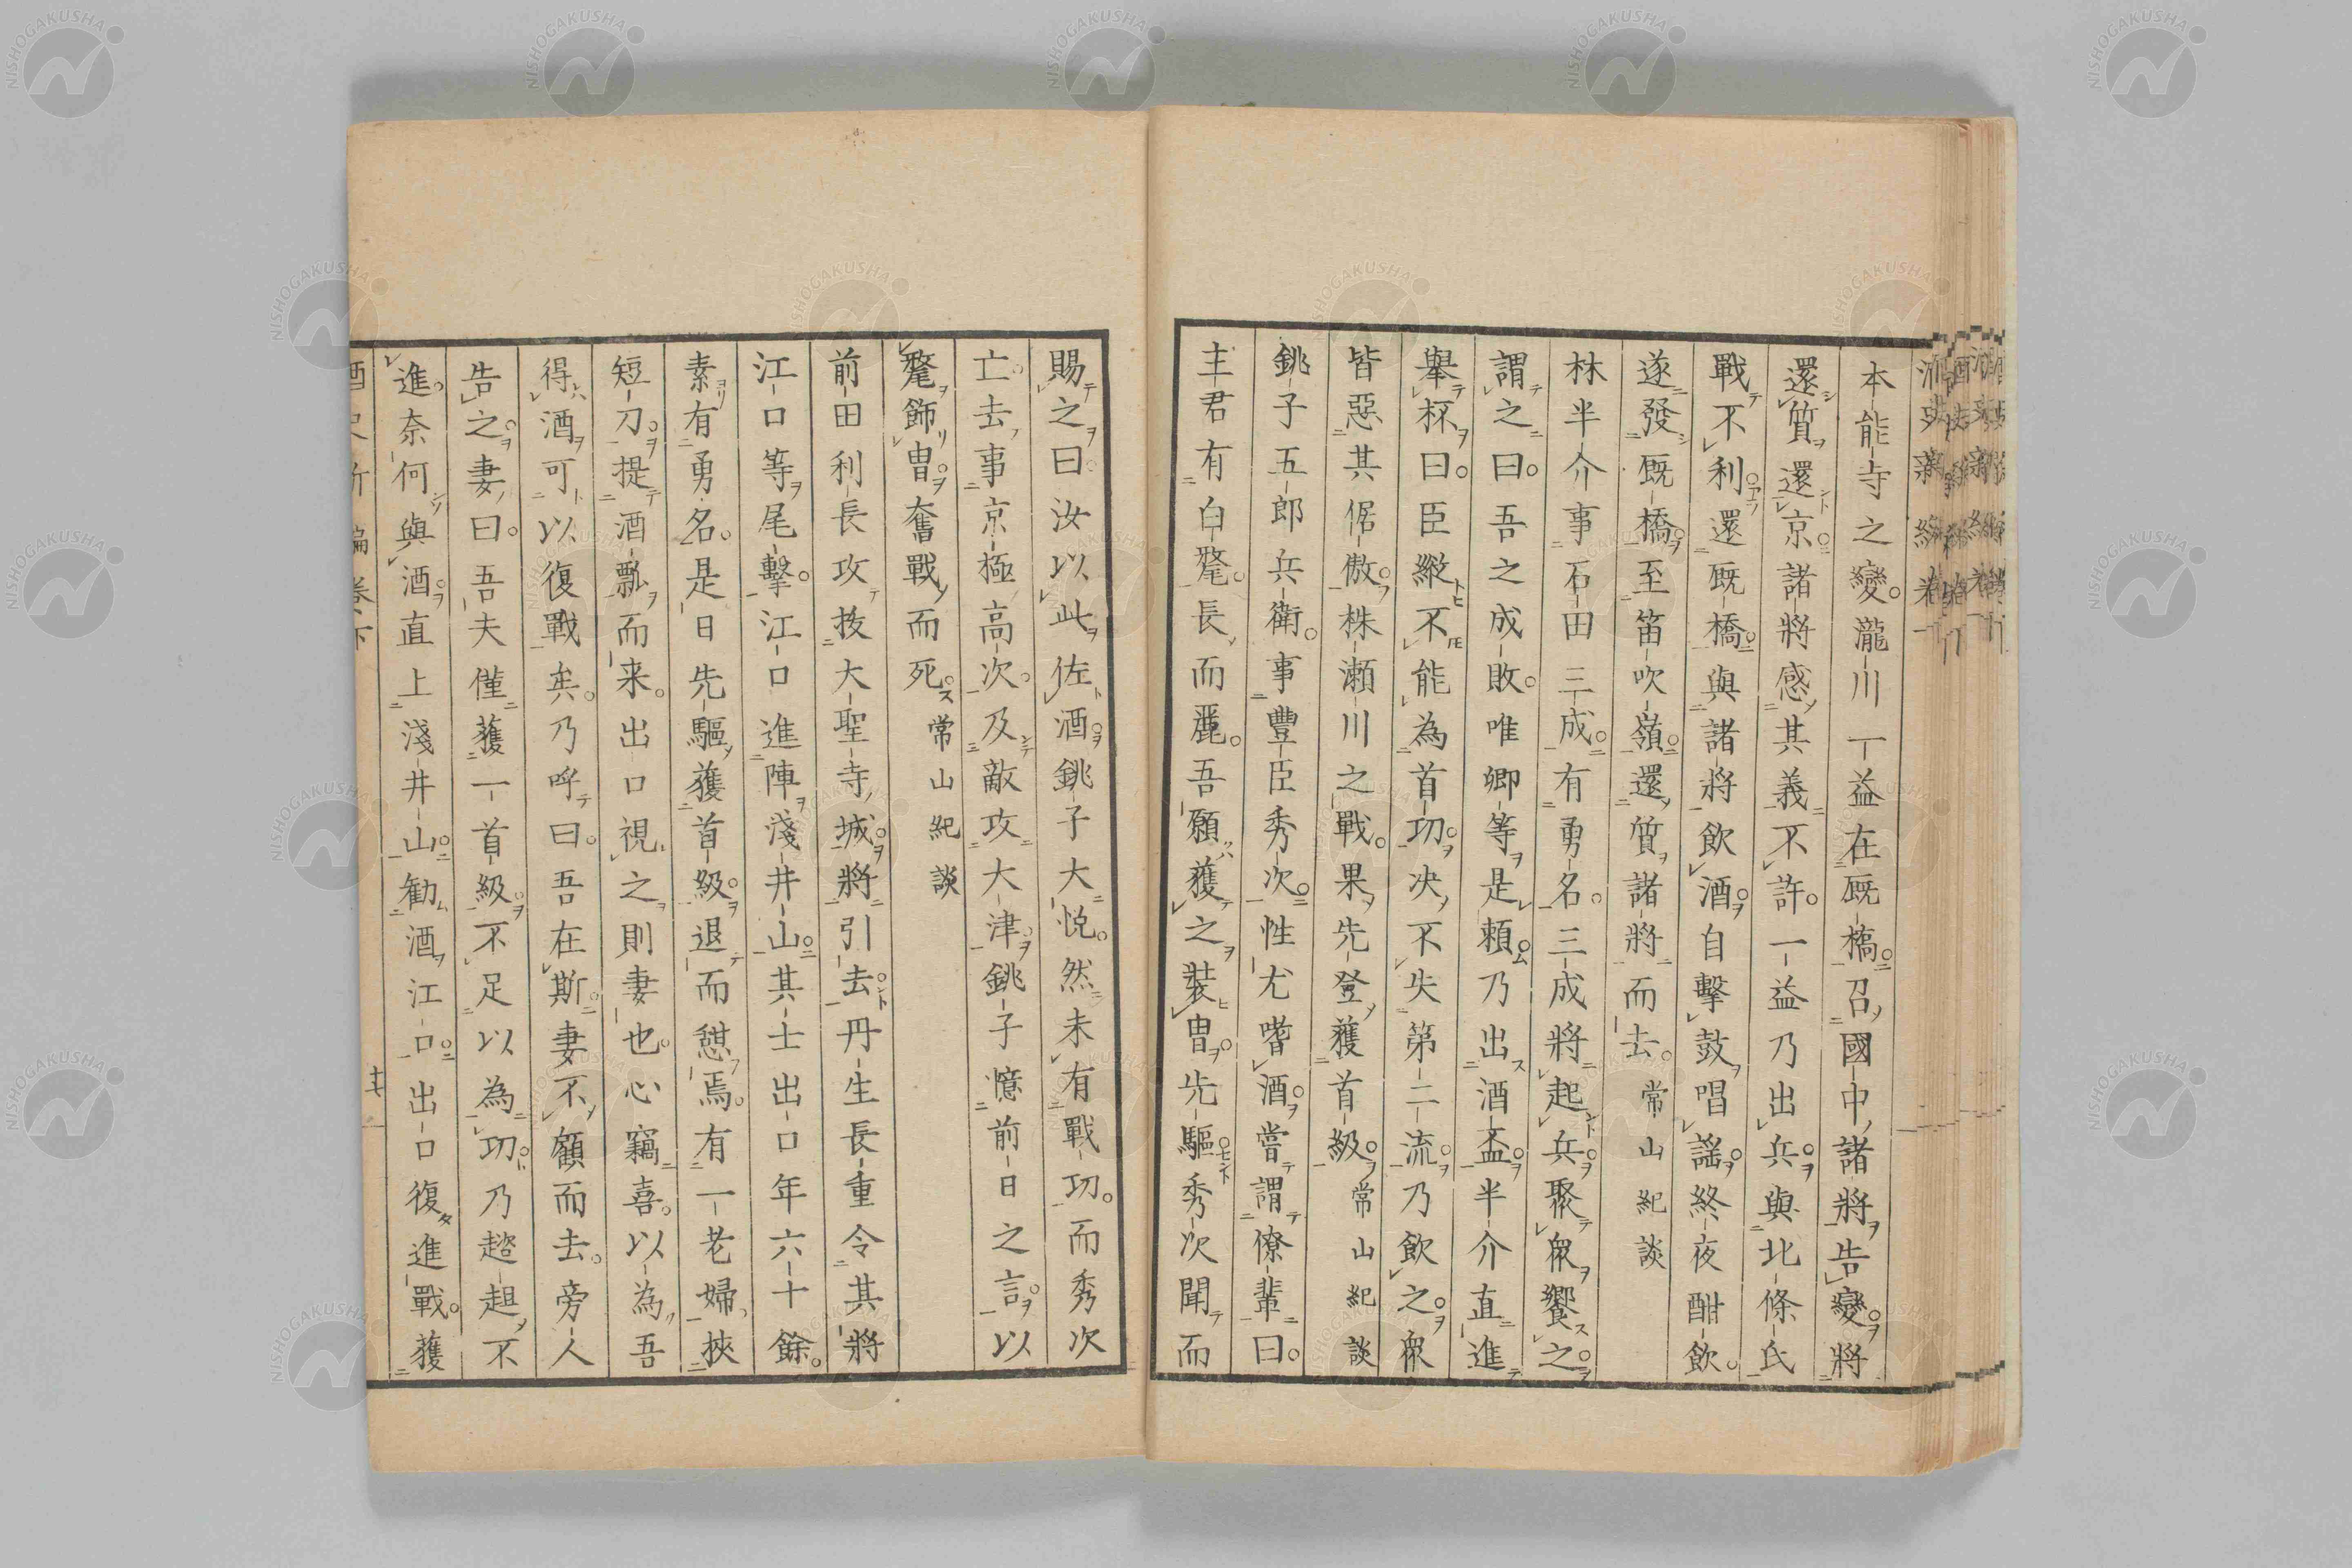 本能寺之變瀧川一益在厩橋召國中諸將告變將
還質還京諸將感其義不許一益乃出兵與北條氏
戰不利還厩橋與諸將飲酒自擊鼓唱謡終夜酣飲
遂發厩橋至笛吹嶺還質諸將而去常山紀談
林半介事石田三成有勇名三成將起兵聚衆饗之
謂之曰吾之成敗唯卿等是頼乃出酒盃半介直進
舉杯曰臣縱不能為首功决不失第二流乃飲之衆
皆惡其倨傲株瀬川之戰果先登獲首級常山紀談
銚子五郎兵衛事豐臣秀次性尤嗜酒嘗謂僚輩曰
主君有白氅長而麗吾願獲之装冑先驅秀次聞而
賜之曰汝以此佐酒銚子大悦然未有戰功而秀次
亡去事京極高次及敵攻大津銚子憶前日之言以
氅飾冑奮戰而死常山紀談
前田利長攻抜大聖寺城將引去丹生長重令其將
江口等尾擊江口進陣淺井山其士出口年六十餘
素有勇名是日先驅獲首級退而憇焉有一老婦挾
短刀提酒瓢而来出口視之則妻也心竊喜以為吾
得酒可以復戰矣乃呼曰吾在斯妻不顧而去旁人
告之妻曰吾夫僅獲一首級不足以為功乃趑趄不
進奈何與酒直上淺井山勧酒江口出口復進戰獲
NISHOGAKUSHA